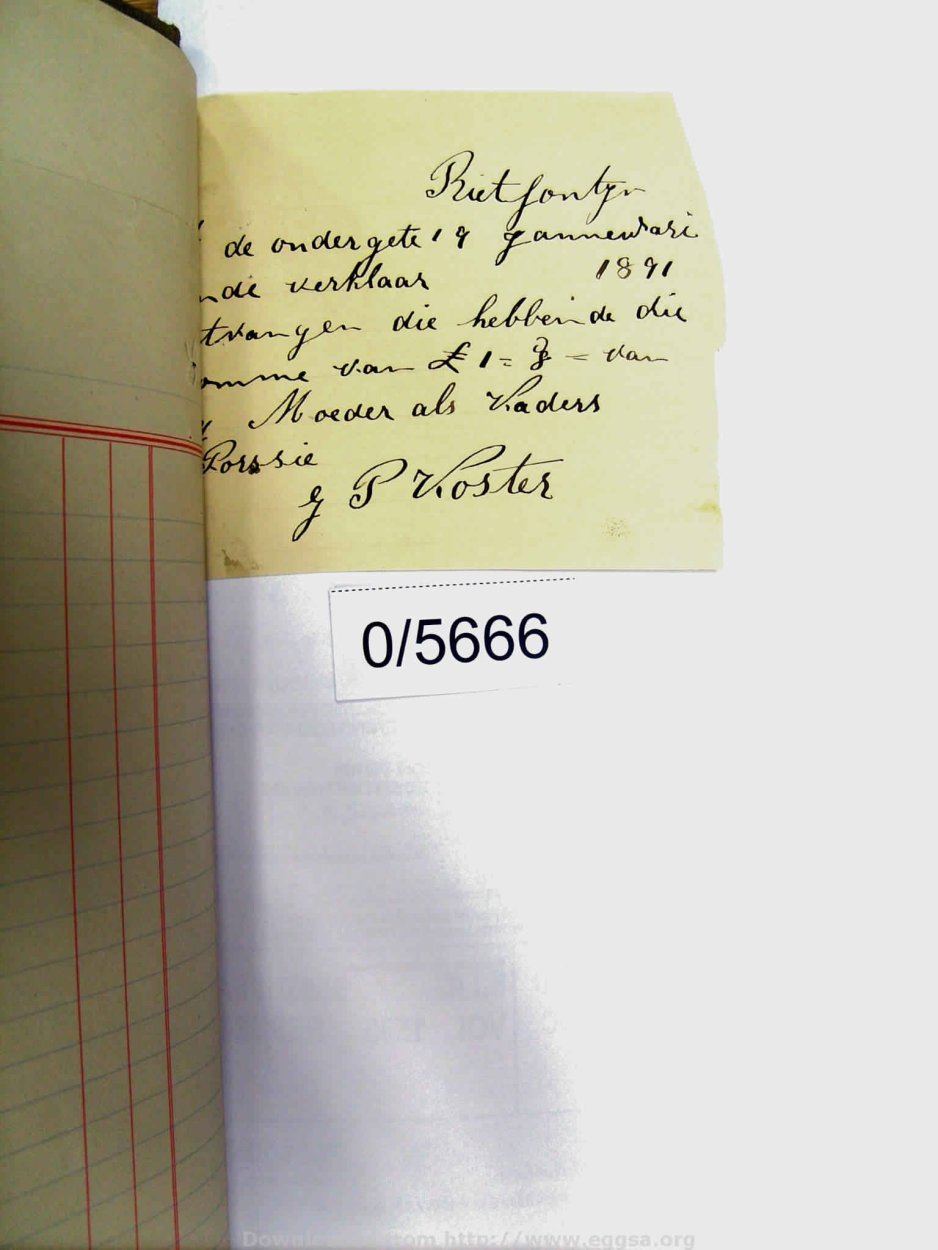 Rietfontyn
de ondergete 19 Jannewari
nde verklaar 1891
tvangen die hebbende die
omme van £ 1 = van
Moeder als Vaders
Porssie
J P Koster
0/5666
http://www.eggsa.org